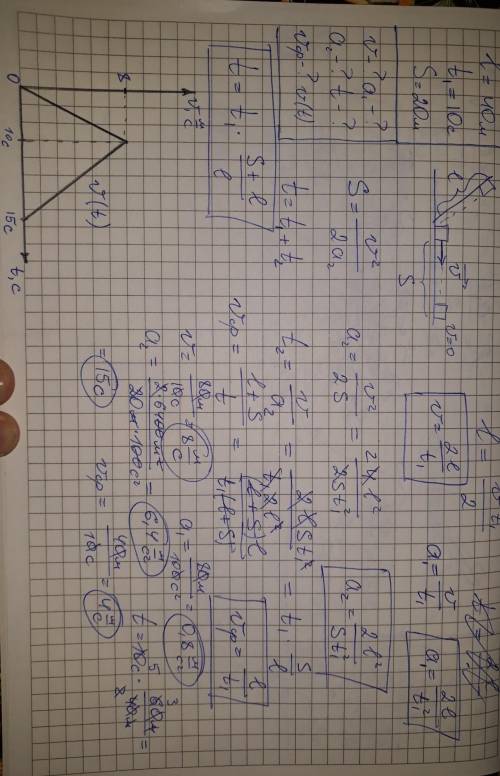 l = 40м
t₁ = 10с
S = 20м
v - ? a₁ - ?
a₂ - ? t - ?
vср - ? v(t)
l
v⃗
v=0
S
l = vt₁/2
v = 2l/t₁
a₁ = v/t₁
a₁ = 2l/t₁²
S = v²/2a₂
a₂ = v²/2S = 24l²/2St₁²
a₂ = 2l²/St₁²
t = t₁ + t₂
t₂ = v/a₂ = 2lSt₁²/t₁2l² = t₁ · S/l
t = t₁ · (S + l)/l
vср = (l+S)/t = (l+S)l/t₁(l+S)
vср = l/t₁
v = 80м/10с = 8 м/с
a₁ = 80м/100с² = 0,8 м/с²
a₂ = 6,4 м/с²
t = 10с · 60м/40м =
= 15с
vср = 40м/10с = 4 м/с
v, м/с
8
v(t)
0
10с
15с
t, с